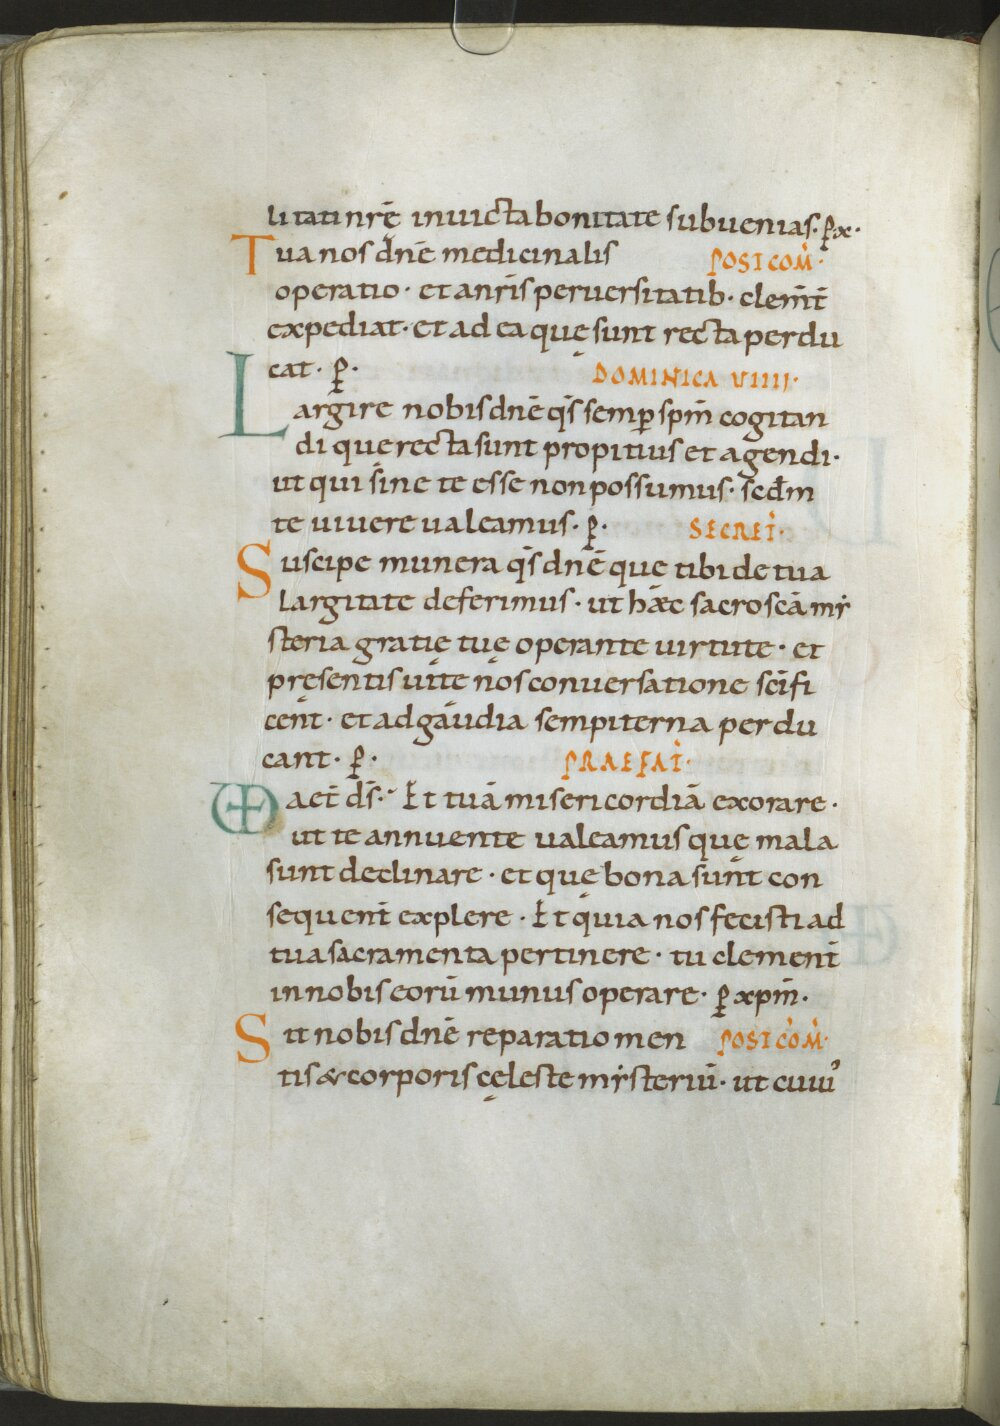 litati nrę̄ inuicta bonitate subuenias· p̱ x·
Tua nos dnē medicinalis POSTCOM̄·
operatio· et anrīs peruersitatib· clem̄t
expediat· et ad ea quę sunt recta perdu
cat· p̱· DOMINICA VIIII·
Largire nobis dnē qs̄ semp̱ spm̄ cogitan
di que recta sunt propitius et agendi·
ut qui sine te esse non possumus· scdm̄
te uiuere ualeamus· p̱· SECRET̄·
Suscipe munera qs̄ dnē que tibi de tua
largitate deferimus· ut hæc sacroscā my
steria gratię tuę operante uirtute· et
pręsentis uitę nos conuersatione scīfi
cent· et ad gaudia sempiterna perdu
cant· p̱· PRAEFAT̄·
VD aet̄ ds̄· Et tuā misericordiā exorare·
ut te annuente ualeamus quę mala
sunt declinare· et quę bona sunt con
sequent̄ explere· Et quia nos fecisti ad
tua sacramenta pertinere· tu clement̄
in nobis eorū munus operare· p̱ xpm̄·
Sit nobis dnē reparatio men POSTCOM̄·
tis & corporis cęleste mysteriū· ut cuiu'